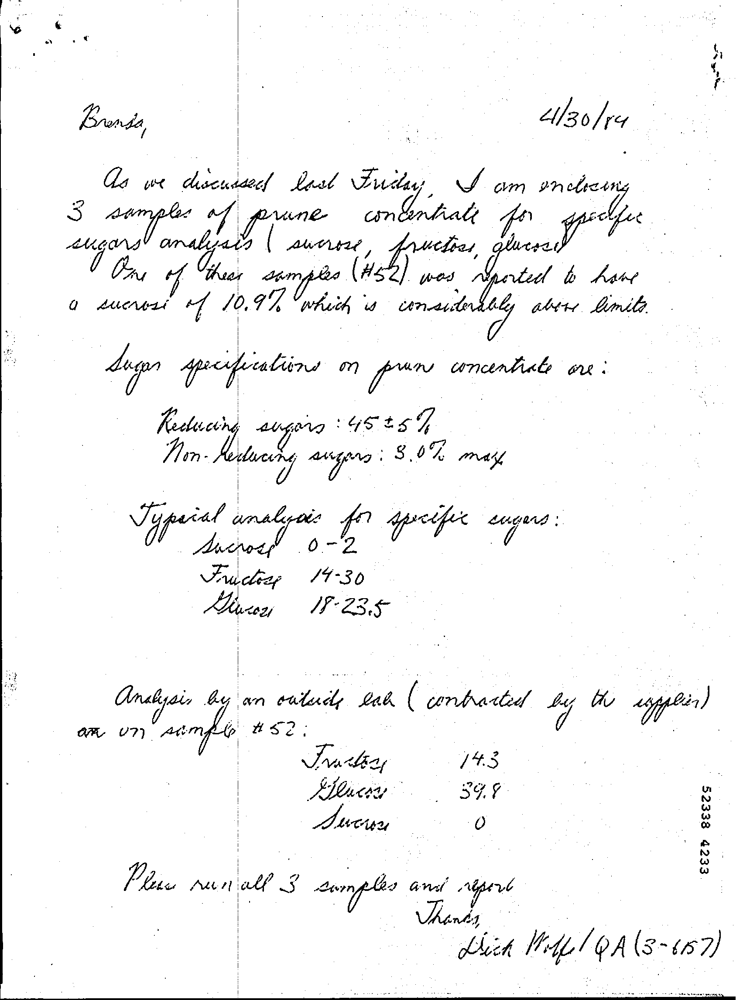 4/30/84
Brenda,
As we discussed last Friday, I am enclosing
3 samples of prune concentrate for specific
sugars analysis (sucrose, fructose, glucose)
One of these samples (#52) was reported to have
a sucrose of 10.9% which is considerably above limits.
Sugar specifications on prune concentrate are:
Reducing sugars: 45 ± 5%
Non-Reducing sugars: 3.0% max
Typical analysis for specific sugars:
Sucrose 0-2
Fructose 14-30
Glucose 18-23.5
Analysis by an outside lab (contracted by the supplier)
on sample #52:
Fructose 14.3
Glucose 39.8
Sucrose 0
Please run all 3 samples and report
Thanks,
Dick Wolfe / QA (3-6157)
52338 4233